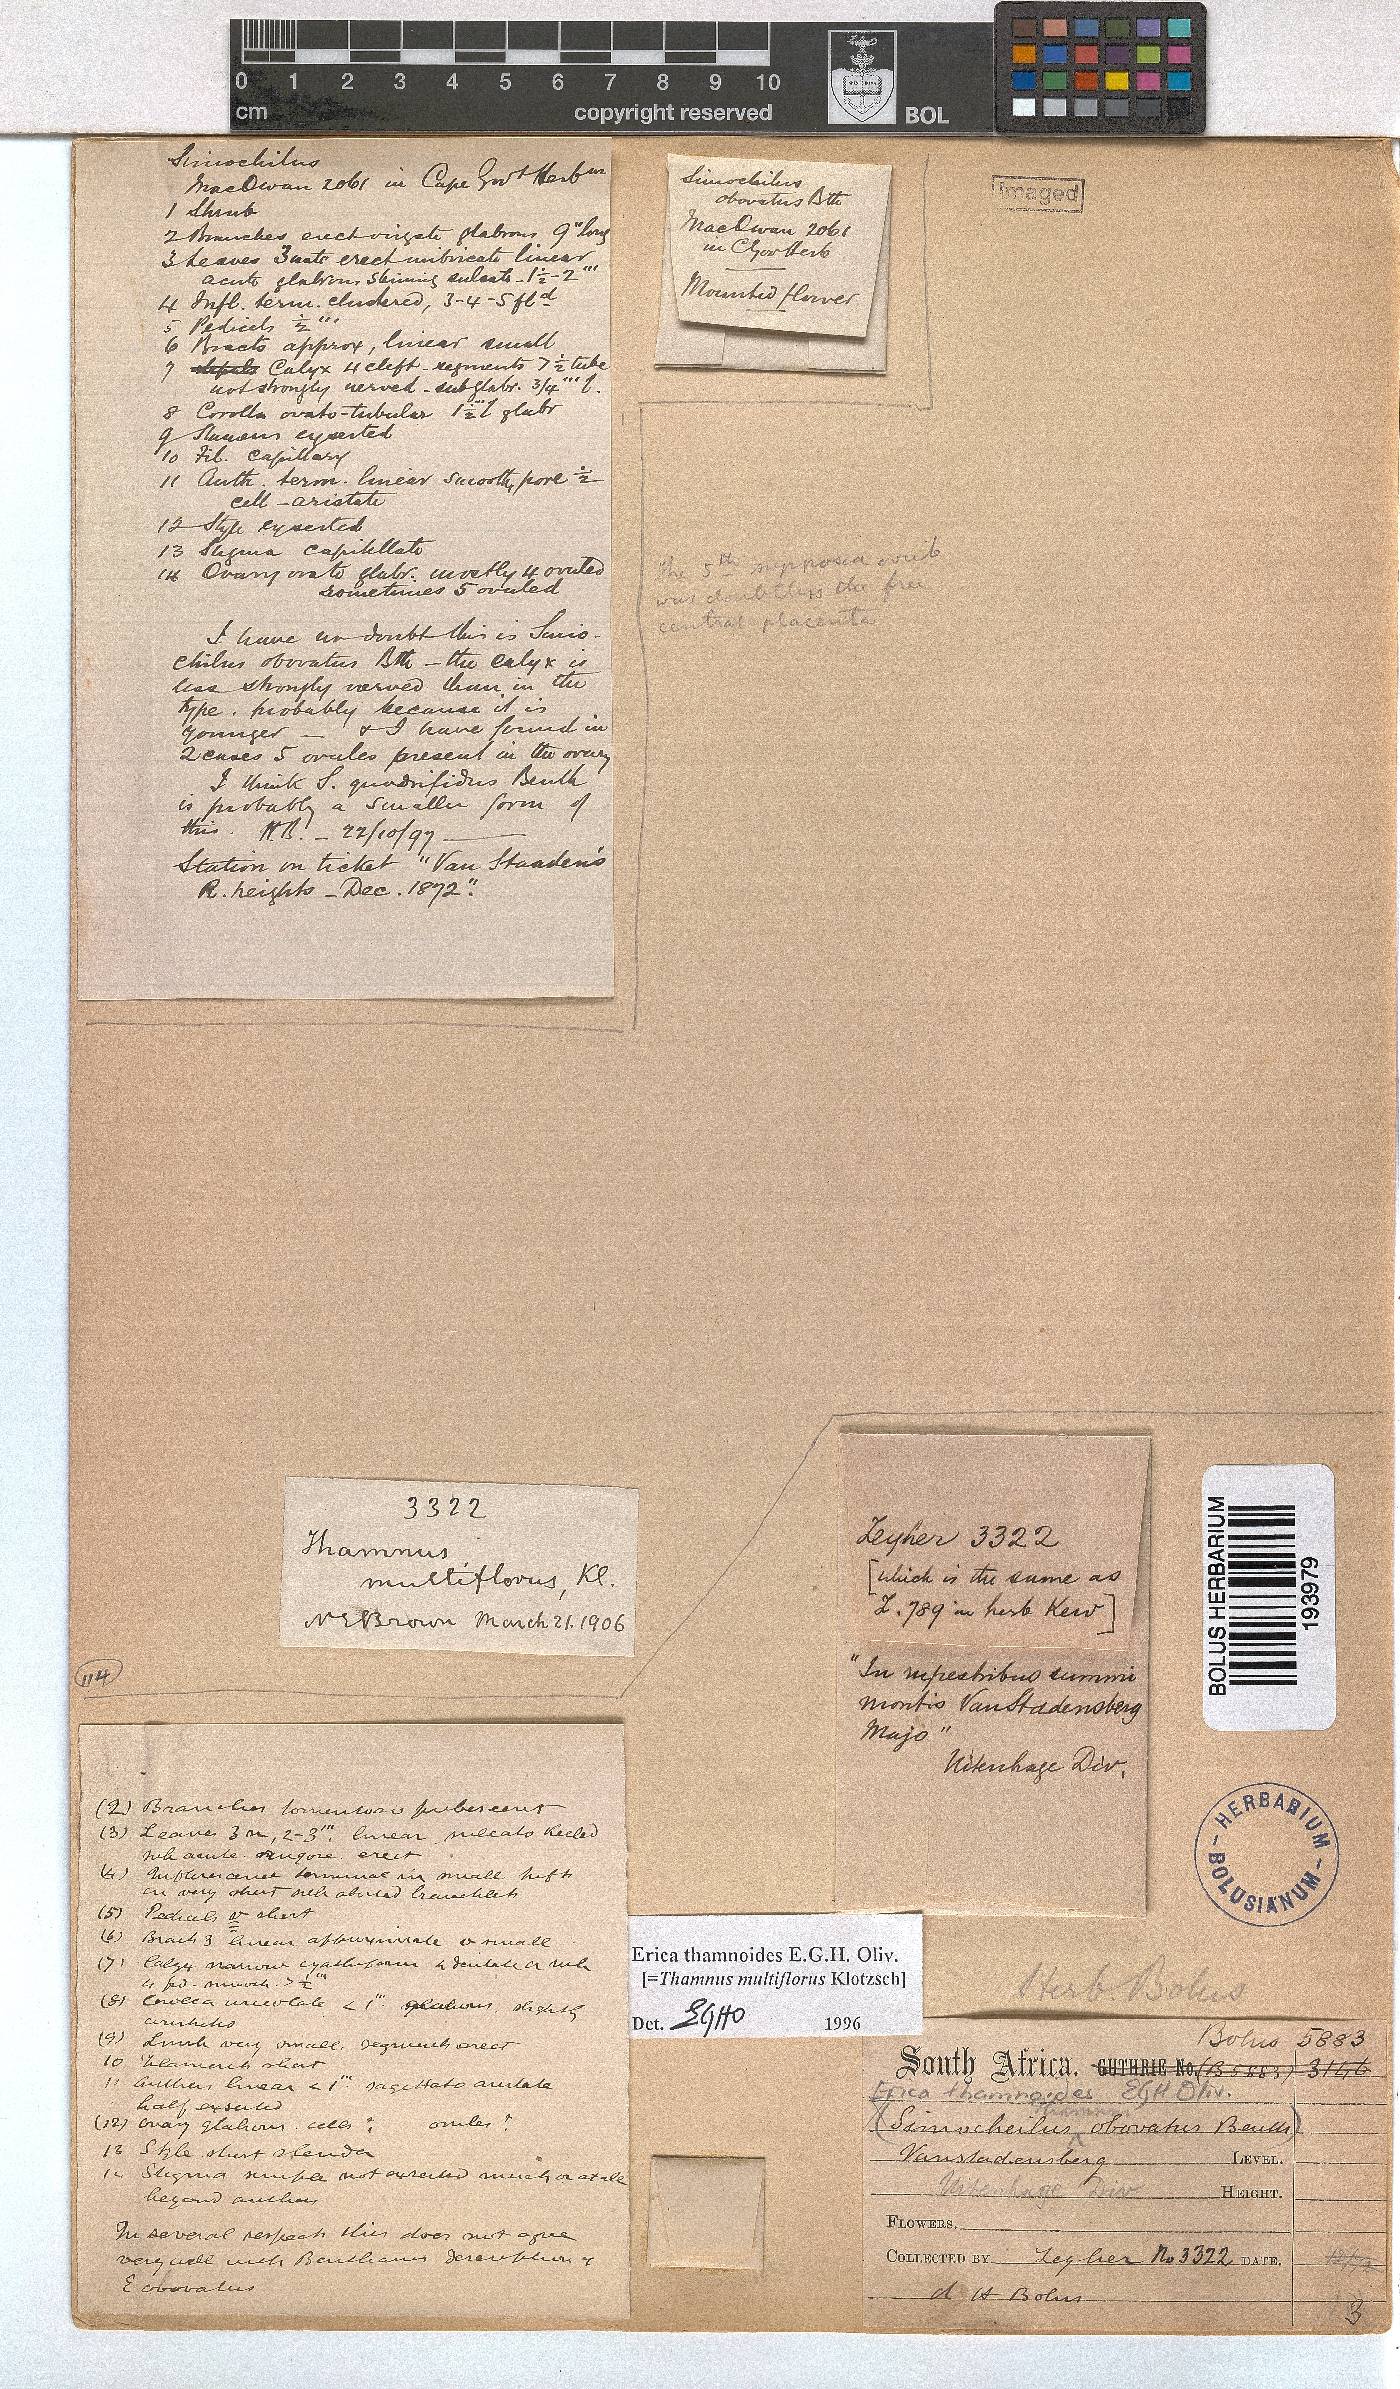 0 1 2 3 4 5 6 7 8 9 10
cm
copyright reserved
BOL
Simochilus
MacOwan 2061 in Cape Govt Herbm
1 Shrub
2 Branches erect virgate glabrous 9" long
3 Leaves 3nate erect imbricate linear
acute glabrous shining sulcate - 1½-2'''
4 Infl. term. clustered, 3-4-5 fld
5 Pedicels ½'''
6 Bracts approx, linear small
7 Calyx 4 cleft - segments > ½ tube
not strongly nerved - subglabr. 3/4''' l.
8 Corolla ovato-tubular 1½''' l glabr
9 Stamens exserted
10 Fil. capillary
11 Anth. term. linear smooth, pore ½
cell - aristate
12 Style exserted
13 Stigma capitellate
14 Ovary ovate glabr. mostly 4 ovuled
sometimes 5 ovuled
I have no doubt this is Simo-
chilus obovatus Bth - the calyx is
less strongly nerved than in the
type. probably because it is
younger - & I have found in
2 cases 5 ovules present in the ovary
I think S. quadrifidus Benth
is probably a smaller form of
this. H.B. - 22/10/97
Station on ticket "Van Staaden's
R. heights - Dec. 1872".
Simochilus
obovatus Bth
MacOwan 2061
in C Gov Herb
Mounted flower
Imaged
The 5th supposed ovule
was doubtless the free
central placenta
3322
Thamnus
multiflorus, Kl.
N E Brown March 21. 1906
114
Zeyher 3322
[which is the same as
Z. 789 in herb Kew]
"In rupestribus summi
montis VanStadensberg
Majo"
Uitenhage Div.
BOLUS HERBARIUM
193979
HERBARIUM
BOLUSIANUM
(2) Branches tomentoso pubescent
(3) Leaves 3 n, 2-3''' linear sulcate keeled
sub acute erect
(4) Inflorescence terminal in small tufts
on very short branchlets
(5) Pedicels v short
(6) Bracts 3 linear approximate v small
(7) Calyx narrow cyathiform 4 dentate or sub
4 fid
(8) Corolla urceolate < 1''' glabrous slightly
(9) Limb very small, segments erect
10 Filaments short
11 Anthers linear < 1''' sagittate aristate
half exserted
(12) Ovary glabrous cells ? ovules ?
13 Style short slender
14 Stigma simple not exserted much or at all
beyond anthers
In several respects this does not agree
very well with Benthams description of
E obovatus
Erica thamnoides E.G.H. Oliv.
[=Thamnus multiflorus Klotzsch]
Det. EGHO 1996
Herb. Bolus
Bolus 5883
South Africa. GUTHRIE No. (B 5883) 3146
Erica thamnoides EGH Oliv.
(Simocheilus obovatus Benth)
Vanstadensberg LEVEL.
Uitenhage Div HEIGHT.
FLOWERS.
COLLECTED BY Zeyher No 3322 DATE.
d H Bolus
3